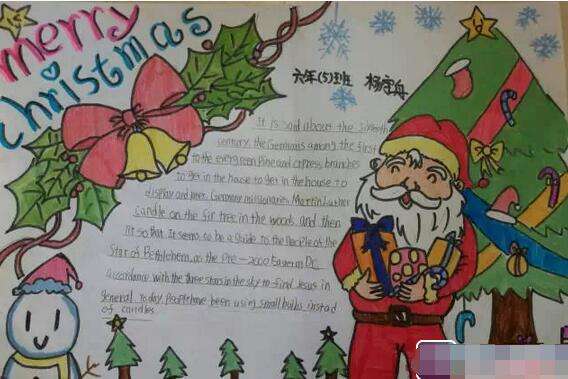 merry
christmas
六年(5)班 杨宇舟
It is said about the Sixteenth
century, the Germans among the first
to the evergreen Pine and cypress branches
to get in the house to get in the house to
display and later, Germane missionaries Martin Luther
candle on the fir tree in the woods and then
lit so that it seems to be a guide to the people of the
Star of Bethlehem, as the Pre-2000
accordance with the three stars in the sky to find Jesus in
general today. People have been using small bulbs instead
of candles